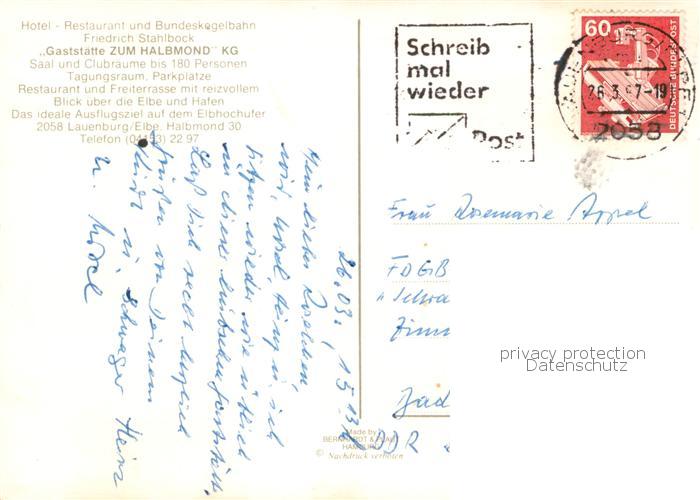 Hotel - Restaurant und Bundeskegelbahn
Friedrich Stahlbock
„Gaststätte ZUM HALBMOND" KG
Saal und Clubräume bis 180 Personen
Tagungsraum, Parkplätze
Restaurant und Freiterrasse mit reizvollem
Blick über die Elbe und Hafen
Das ideale Ausflugsziel auf dem Elbhochufer
2058 Lauenburg/Elbe, Halbmond 30
Telefon (04153) 22 97
Schreib
mal
wieder
Post
60
DEUTSCHE BUNDESPOST
26.3. 7-19
2058
26.03.
Mein liebes Röschen
sitzen wieder wie üblich
in dieser
Laß Dich recht herzlich
grüßen von Deinem
Schwager Heinz
u. Mosel
Frau Rosemarie Appel
FDGB
"Schwa
Zimm
Bad
DDR
Made by
BERNHARDT &
HAMBURG
© Nachdruck verboten
privacy protection
Datenschutz